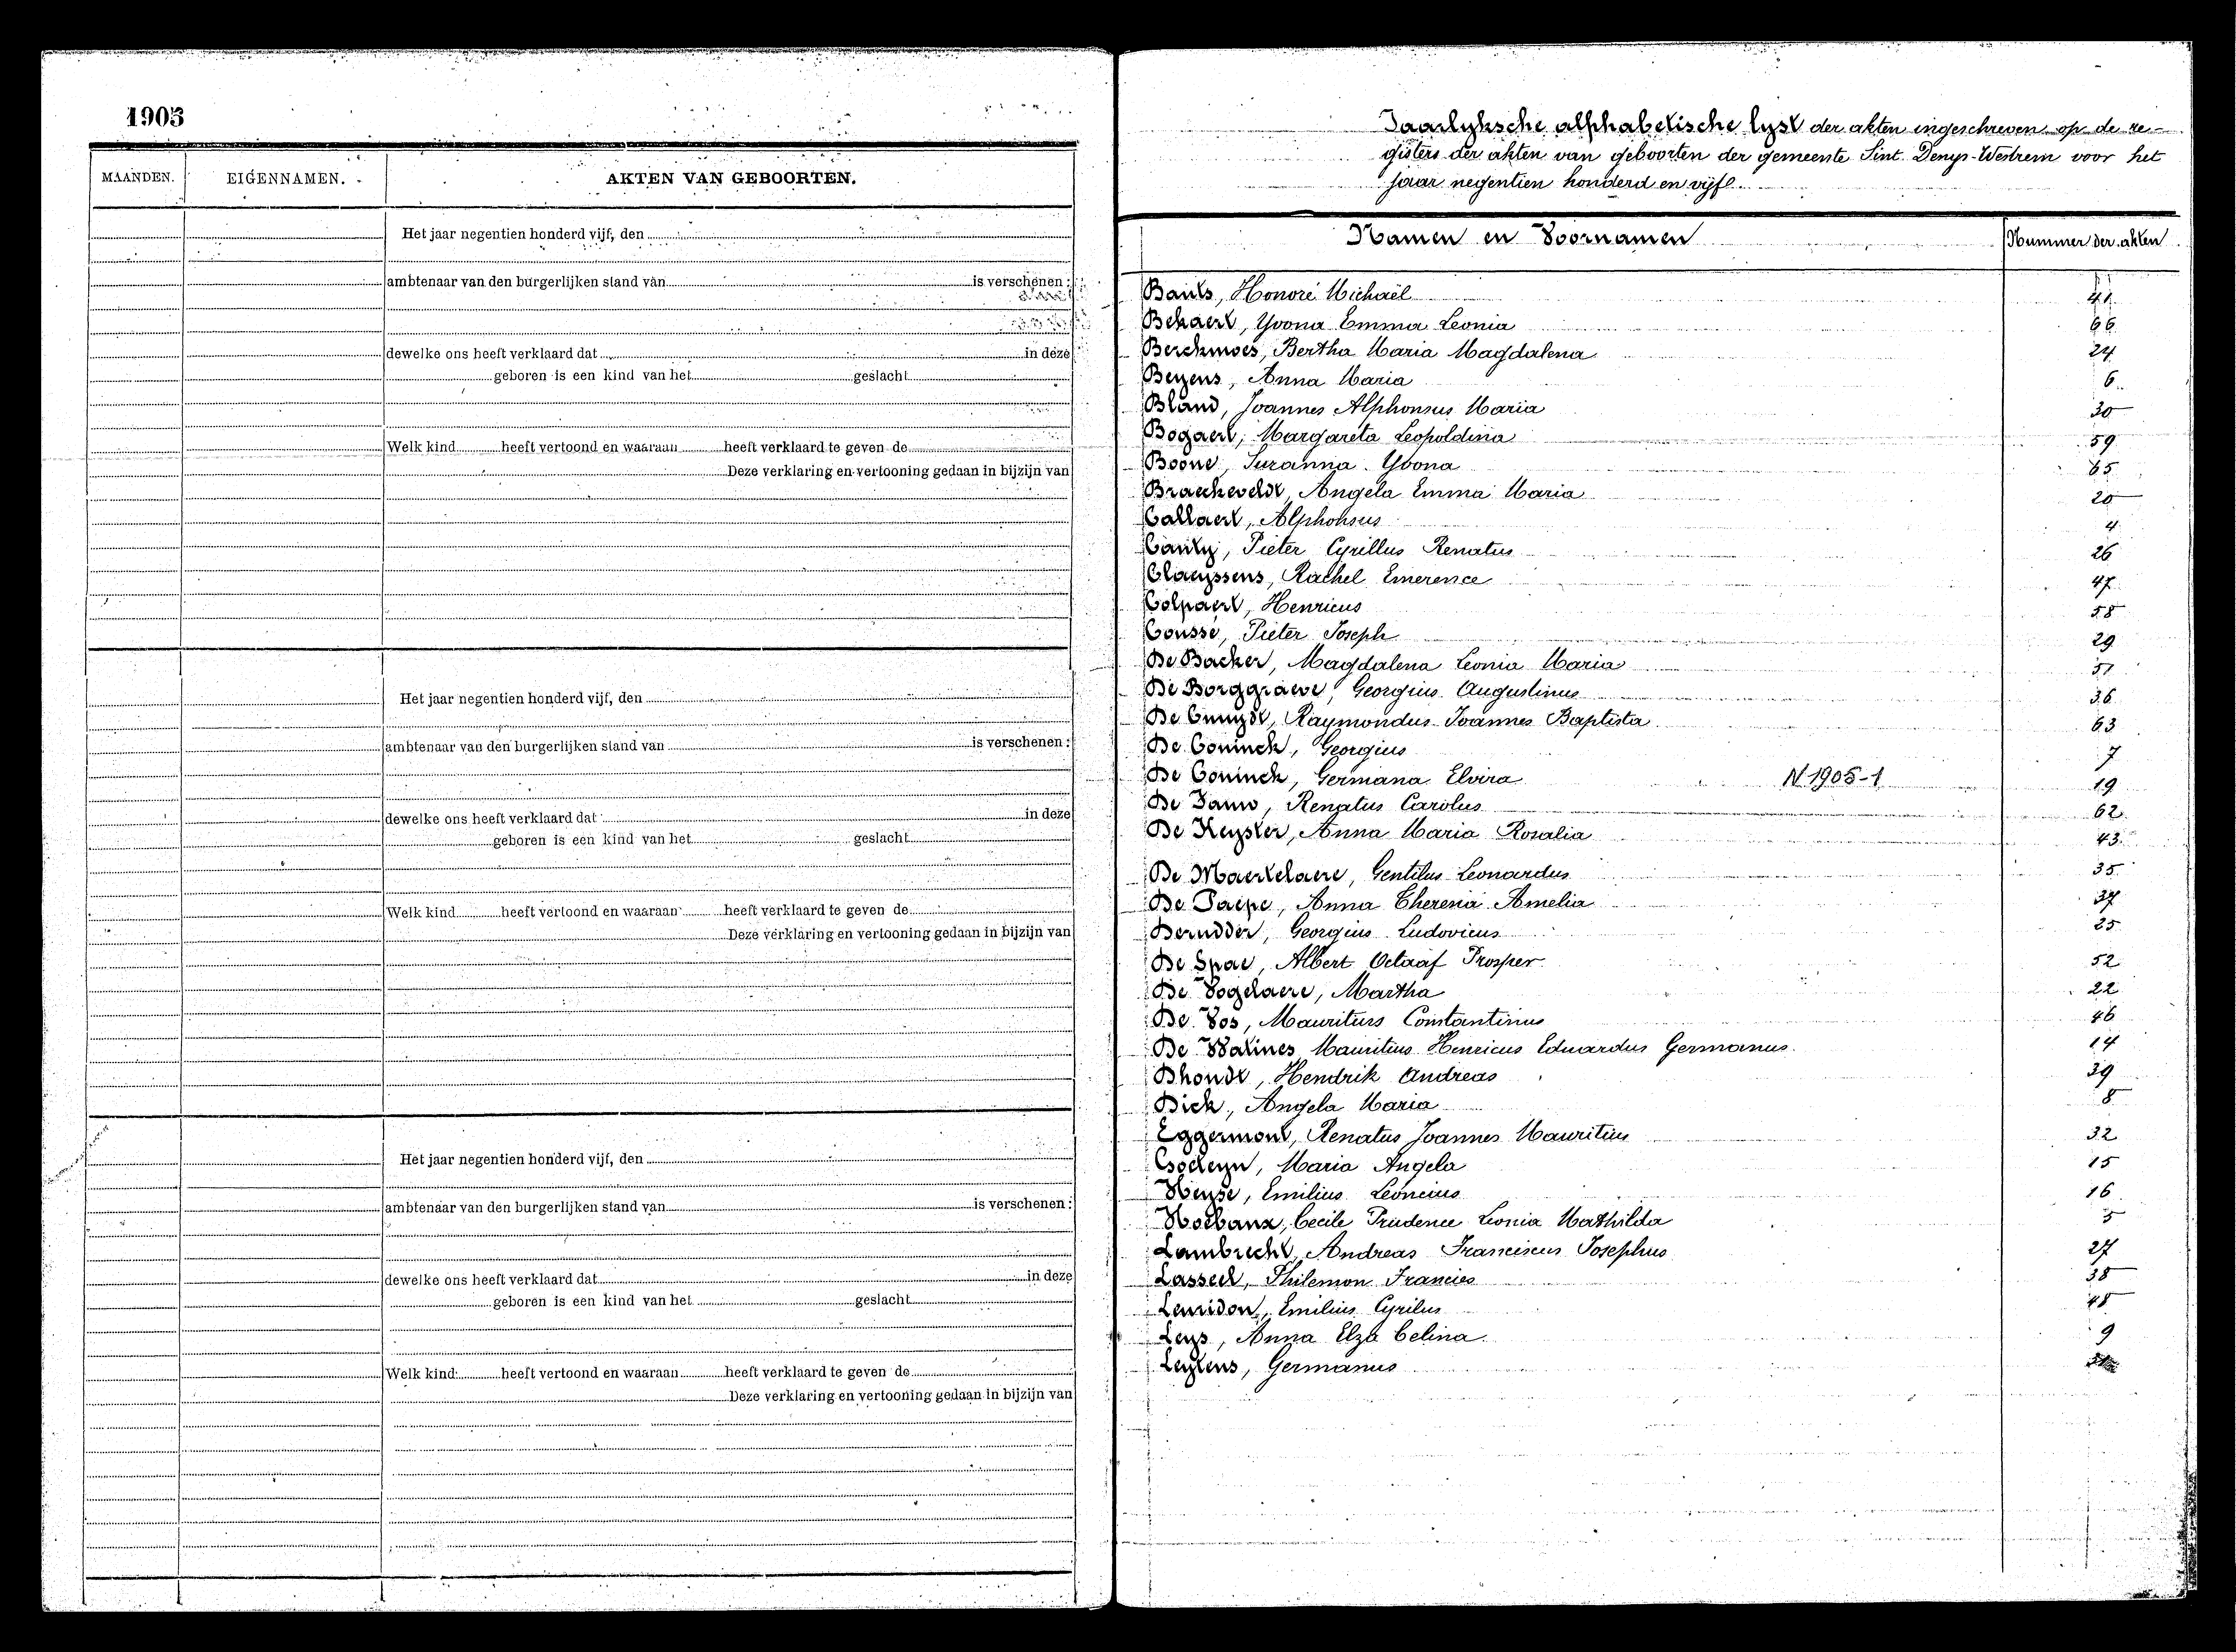 1905
MAANDEN. EIGENNAMEN. AKTEN VAN GEBOORTEN.
Het jaar negentien honderd vijf, den
ambtenaar van den burgerlijken stand van is verschenen:
dewelke ons heeft verklaard dat in deze
geboren is een kind van het geslacht
Welk kind heeft vertoond en waaraan heeft verklaard te geven de
Deze verklaring en vertooning gedaan in bijzijn van
Het jaar negentien honderd vijf, den
ambtenaar van den burgerlijken stand van is verschenen:
dewelke ons heeft verklaard dat in deze
geboren is een kind van het geslacht
Welk kind heeft vertoond en waaraan heeft verklaard te geven de
Deze verklaring en vertooning gedaan in bijzijn van
Het jaar negentien honderd vijf, den
ambtenaar van den burgerlijken stand van is verschenen:
dewelke ons heeft verklaard dat in deze
geboren is een kind van het geslacht
Welk kind heeft vertoond en waaraan heeft verklaard te geven de
Deze verklaring en vertooning gedaan in bijzijn van
Jaarlyksche alphabetische lyst der akten ingeschreven op de re-
gisters der akten van geboorten der gemeente Sint Denys-Westrem voor het
jaar negentien honderd en vijf
Namen en Voornamen Nummer der akten
Bauts, Honoré Michaël 41
Bekaert, Yvona Emma Leonia 66
Berckmoes, Bertha Maria Magdalena 24
Beyens, Anna Maria 6
Bland, Joannes Alphonsus Maria 30
Bogaert, Margareta Leopoldina 59
Boone, Suzanna Yvona 65
Braeckeveldt, Angela Emma Maria 20
Callaert, Alphonsus 4
Canty, Pieter Cyrillus Renatus 26
Claeyssens, Rachel Emerence 47
Colpaert, Henricus 58
Coussé, Pieter Joseph 29
De Backer, Magdalena Leonia Maria 51
De Borggraeve, Georgius Augustinus 36
De Cnuydt, Raymondus Joannes Baptista 63
De Coninck, Georgius 7
De Coninck, Germana Elvira N 1905-1 19
De Fauw, Renatus Carolus 62
De Keyster, Anna Maria Rosalia 43
De Maertelaere, Gentilus Leonardus 35
De Paepe, Anna Theresia Amelia 37
Derudder, Georgius Ludovicus 25
De Spae, Albert Octaaf Prosper 52
De Vogelaere, Martha 22
De Vos, Mauritius Constantinus 46
De Watines Mauritius Henricus Eduardus Germanus 14
Dhondt, Hendrik Andreas 39
Dick, Angela Maria 8
Eggermont, Renatus Joannes Mauritius 32
Maria Angela 15
Heyse, Emilius Leoncius 16
Hoebanx, Cecile Prudence Leonia Mathilda 5
Lambrecht, Andreas Franciscus Josephus 27
Lasseel, Philemon Francies 38
Leuridon, Emilius Cyrilus 48
Leys, Anna Elza Celina 9
Leytens, Germanus